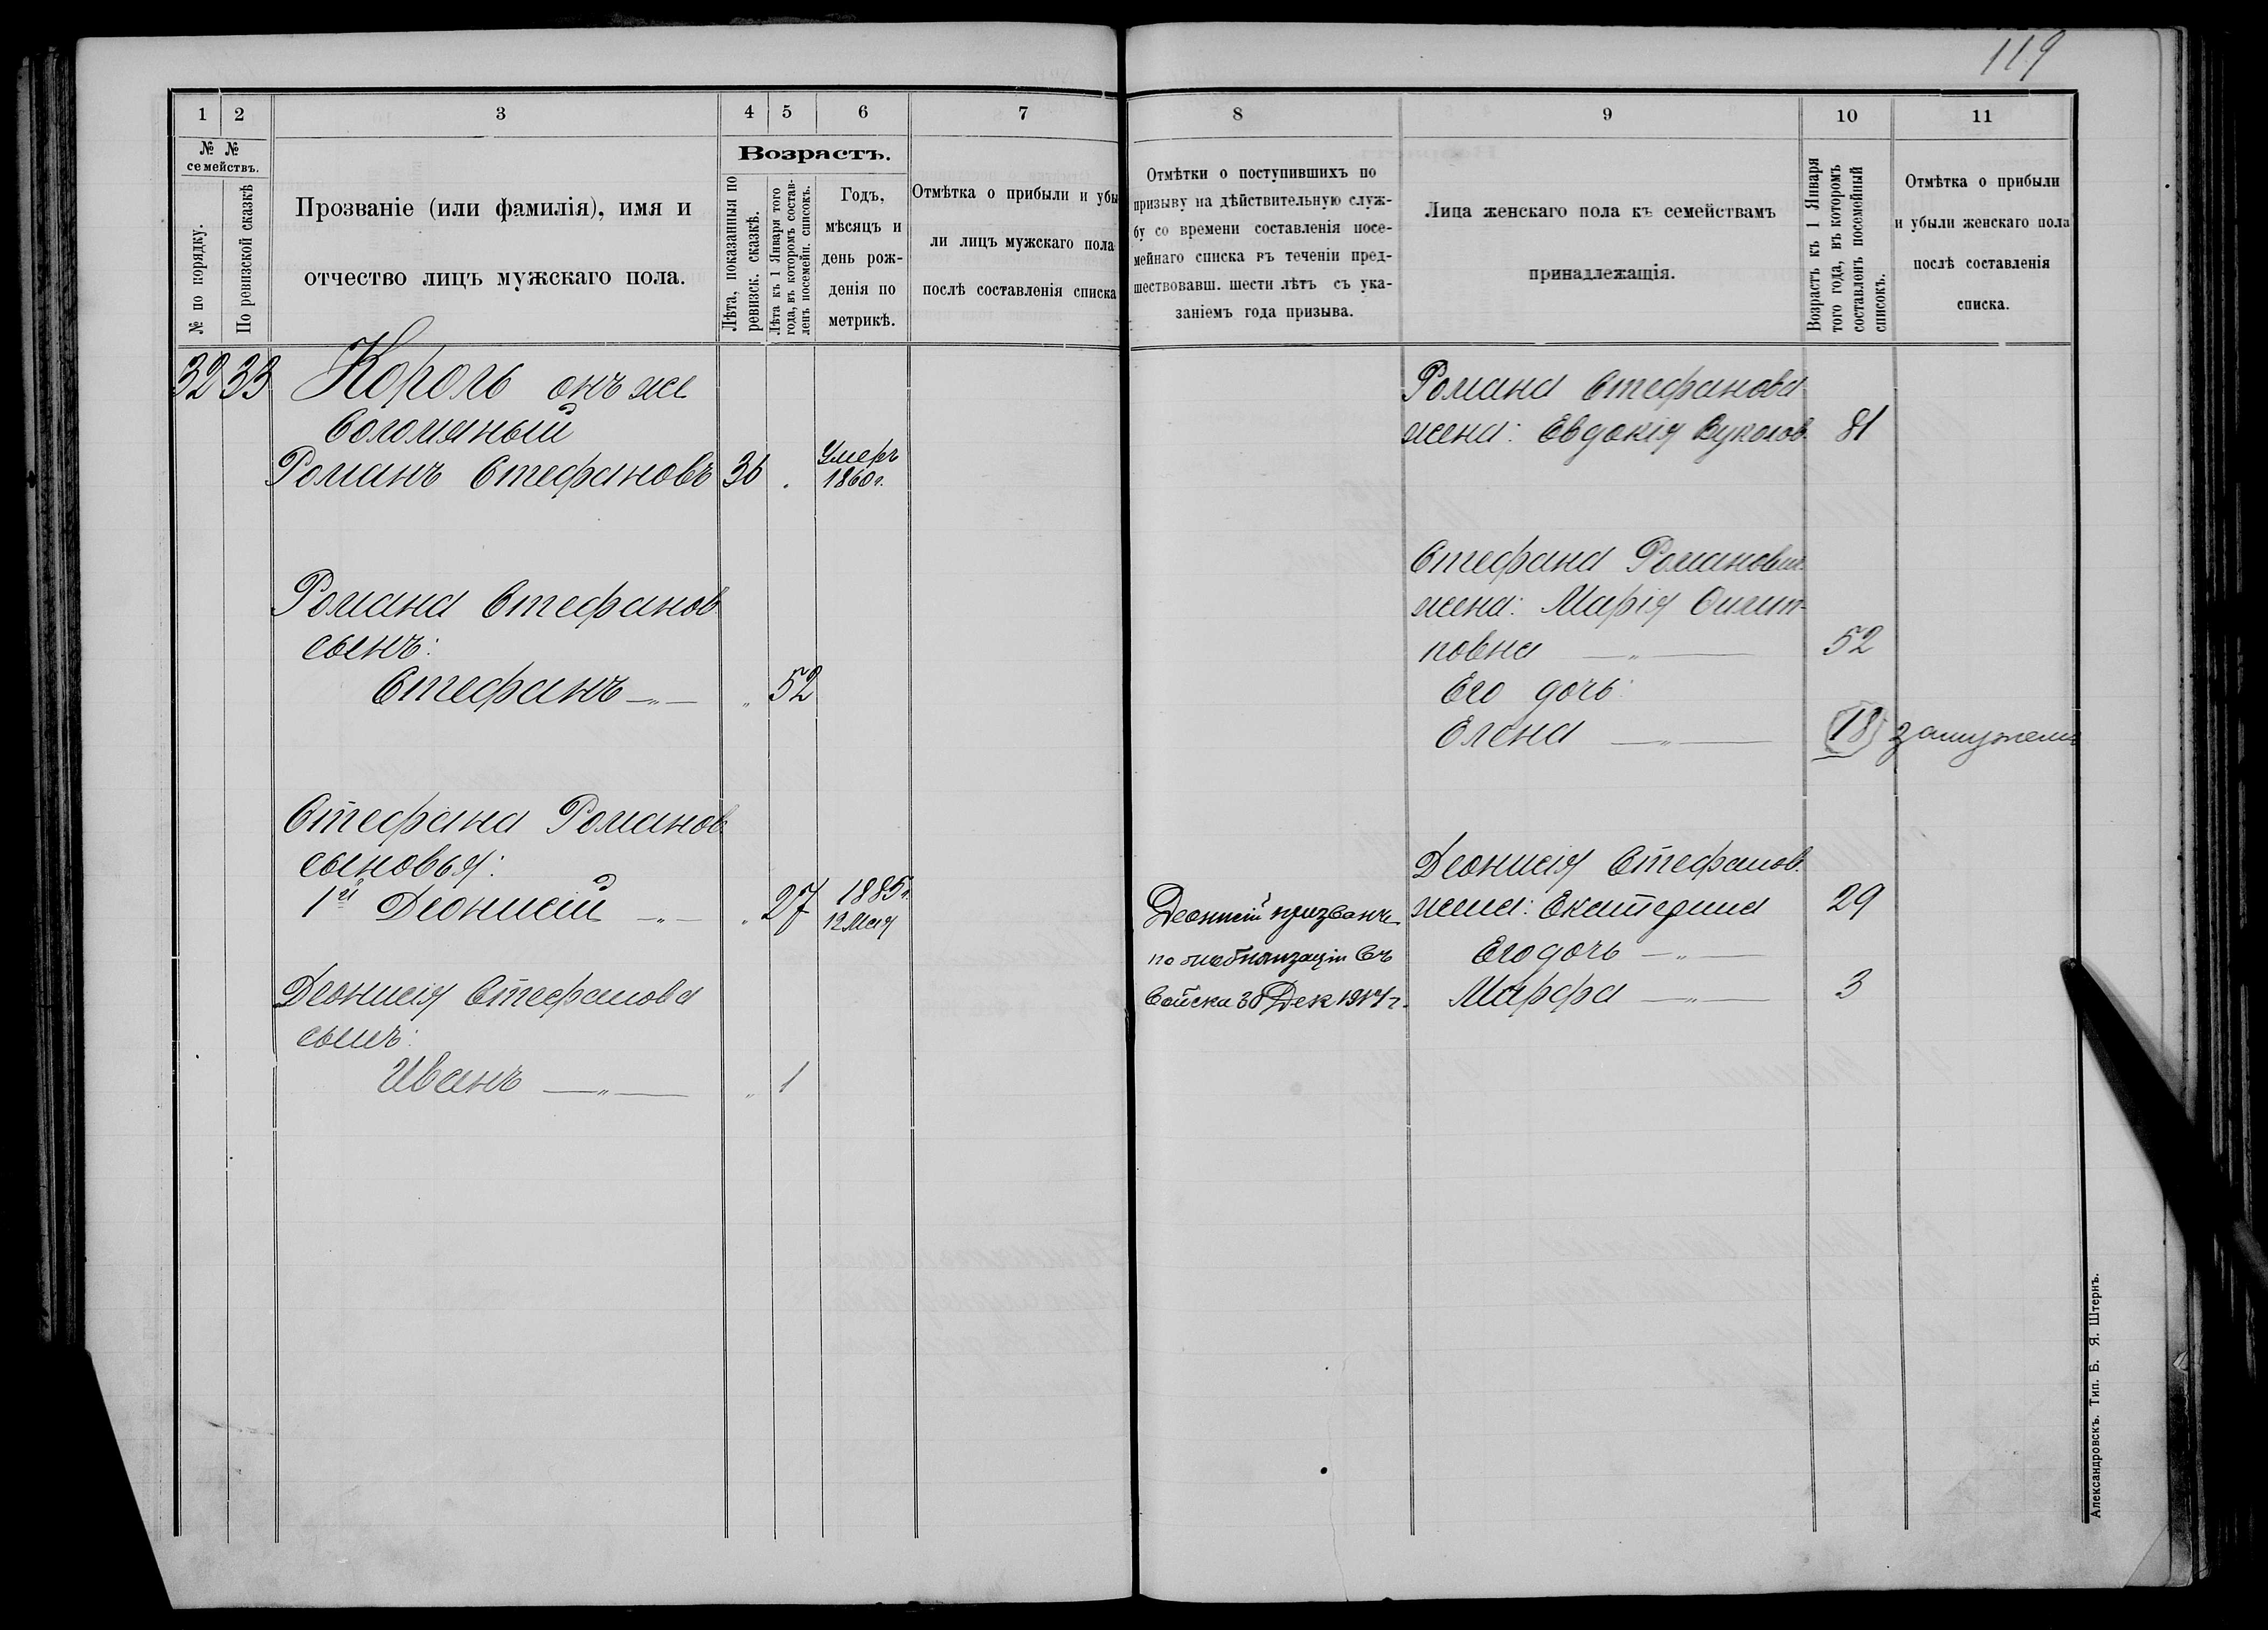 119
1 2 3 4 5 6 7
№ № семействъ.
№ по порядку.
По ревизской сказкѣ
Прозваніе (или фамилія), имя и
отчество лицъ мужскаго пола.
Возрастъ.
Лѣта, показанныя по
ревизск. сказкѣ.
Лѣта къ 1 Января того
года, въ которомъ состав-
ленъ посемейн. списокъ.
Годъ,
мѣсяцъ и
день рож-
денія по
метрикѣ.
Отмѣтка о прибыли и убы
ли лицъ мужскаго пола
послѣ составленія списка
32 33 Король онъ же
Соломяный
Романъ Стефановъ 36 . Умеръ
1860 г.
Романа Стефанов
сынъ:
Стефанъ —„— „ 52
Стефана Романов
сыновья:
1й Деонисій —„— „ 27 1885 г.
12 Мая
Деонисія Стефанова
сынъ:
Иванъ —„— „ 1
8 9 10 11
Отмѣтки о поступившихъ по
призыву на дѣйствительную служ-
бу со времени составленія посе-
мейнаго списка въ теченіи пред-
шествовавш. шести лѣтъ съ ука-
заніемъ года призыва.
Лица женскаго пола къ семействамъ
принадлежащія.
Возрастъ къ 1 Января
того года, въ которомъ
составленъ посемейный
списокъ.
Отмѣтка о прибыли
и убыли женскаго пола
послѣ составленія
списка.
Романа Стефанова
жена: Евдокія Вуколов. 81
Стефана Романова
жена: Марія
повна —„— 52
Его дочь:
Елена —„— 18 замужем
Деонисія Стефанов.
жена: Екатерина 29
Его дочь —„—
Марфа —„— 3
Деонисій призванъ
по мобилизаціи въ
войска 30 Дек 1914 г.
Александровскъ. Тип. Б. Я. Штернъ.